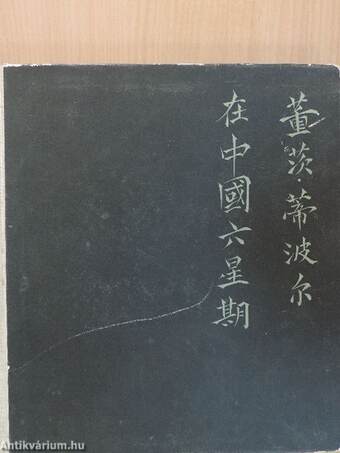 董茨·蒂波尔
在中國六星期
Antikvárium.hu